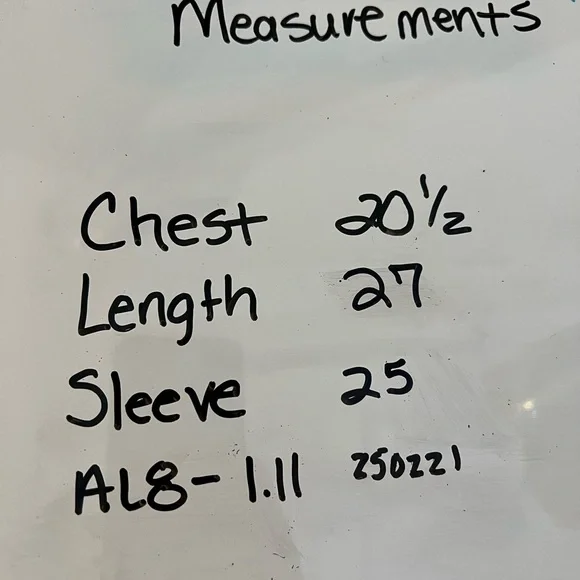 Measurements
Chest 20 1/2
Length 27
Sleeve 25
AL8- 1.11 250221